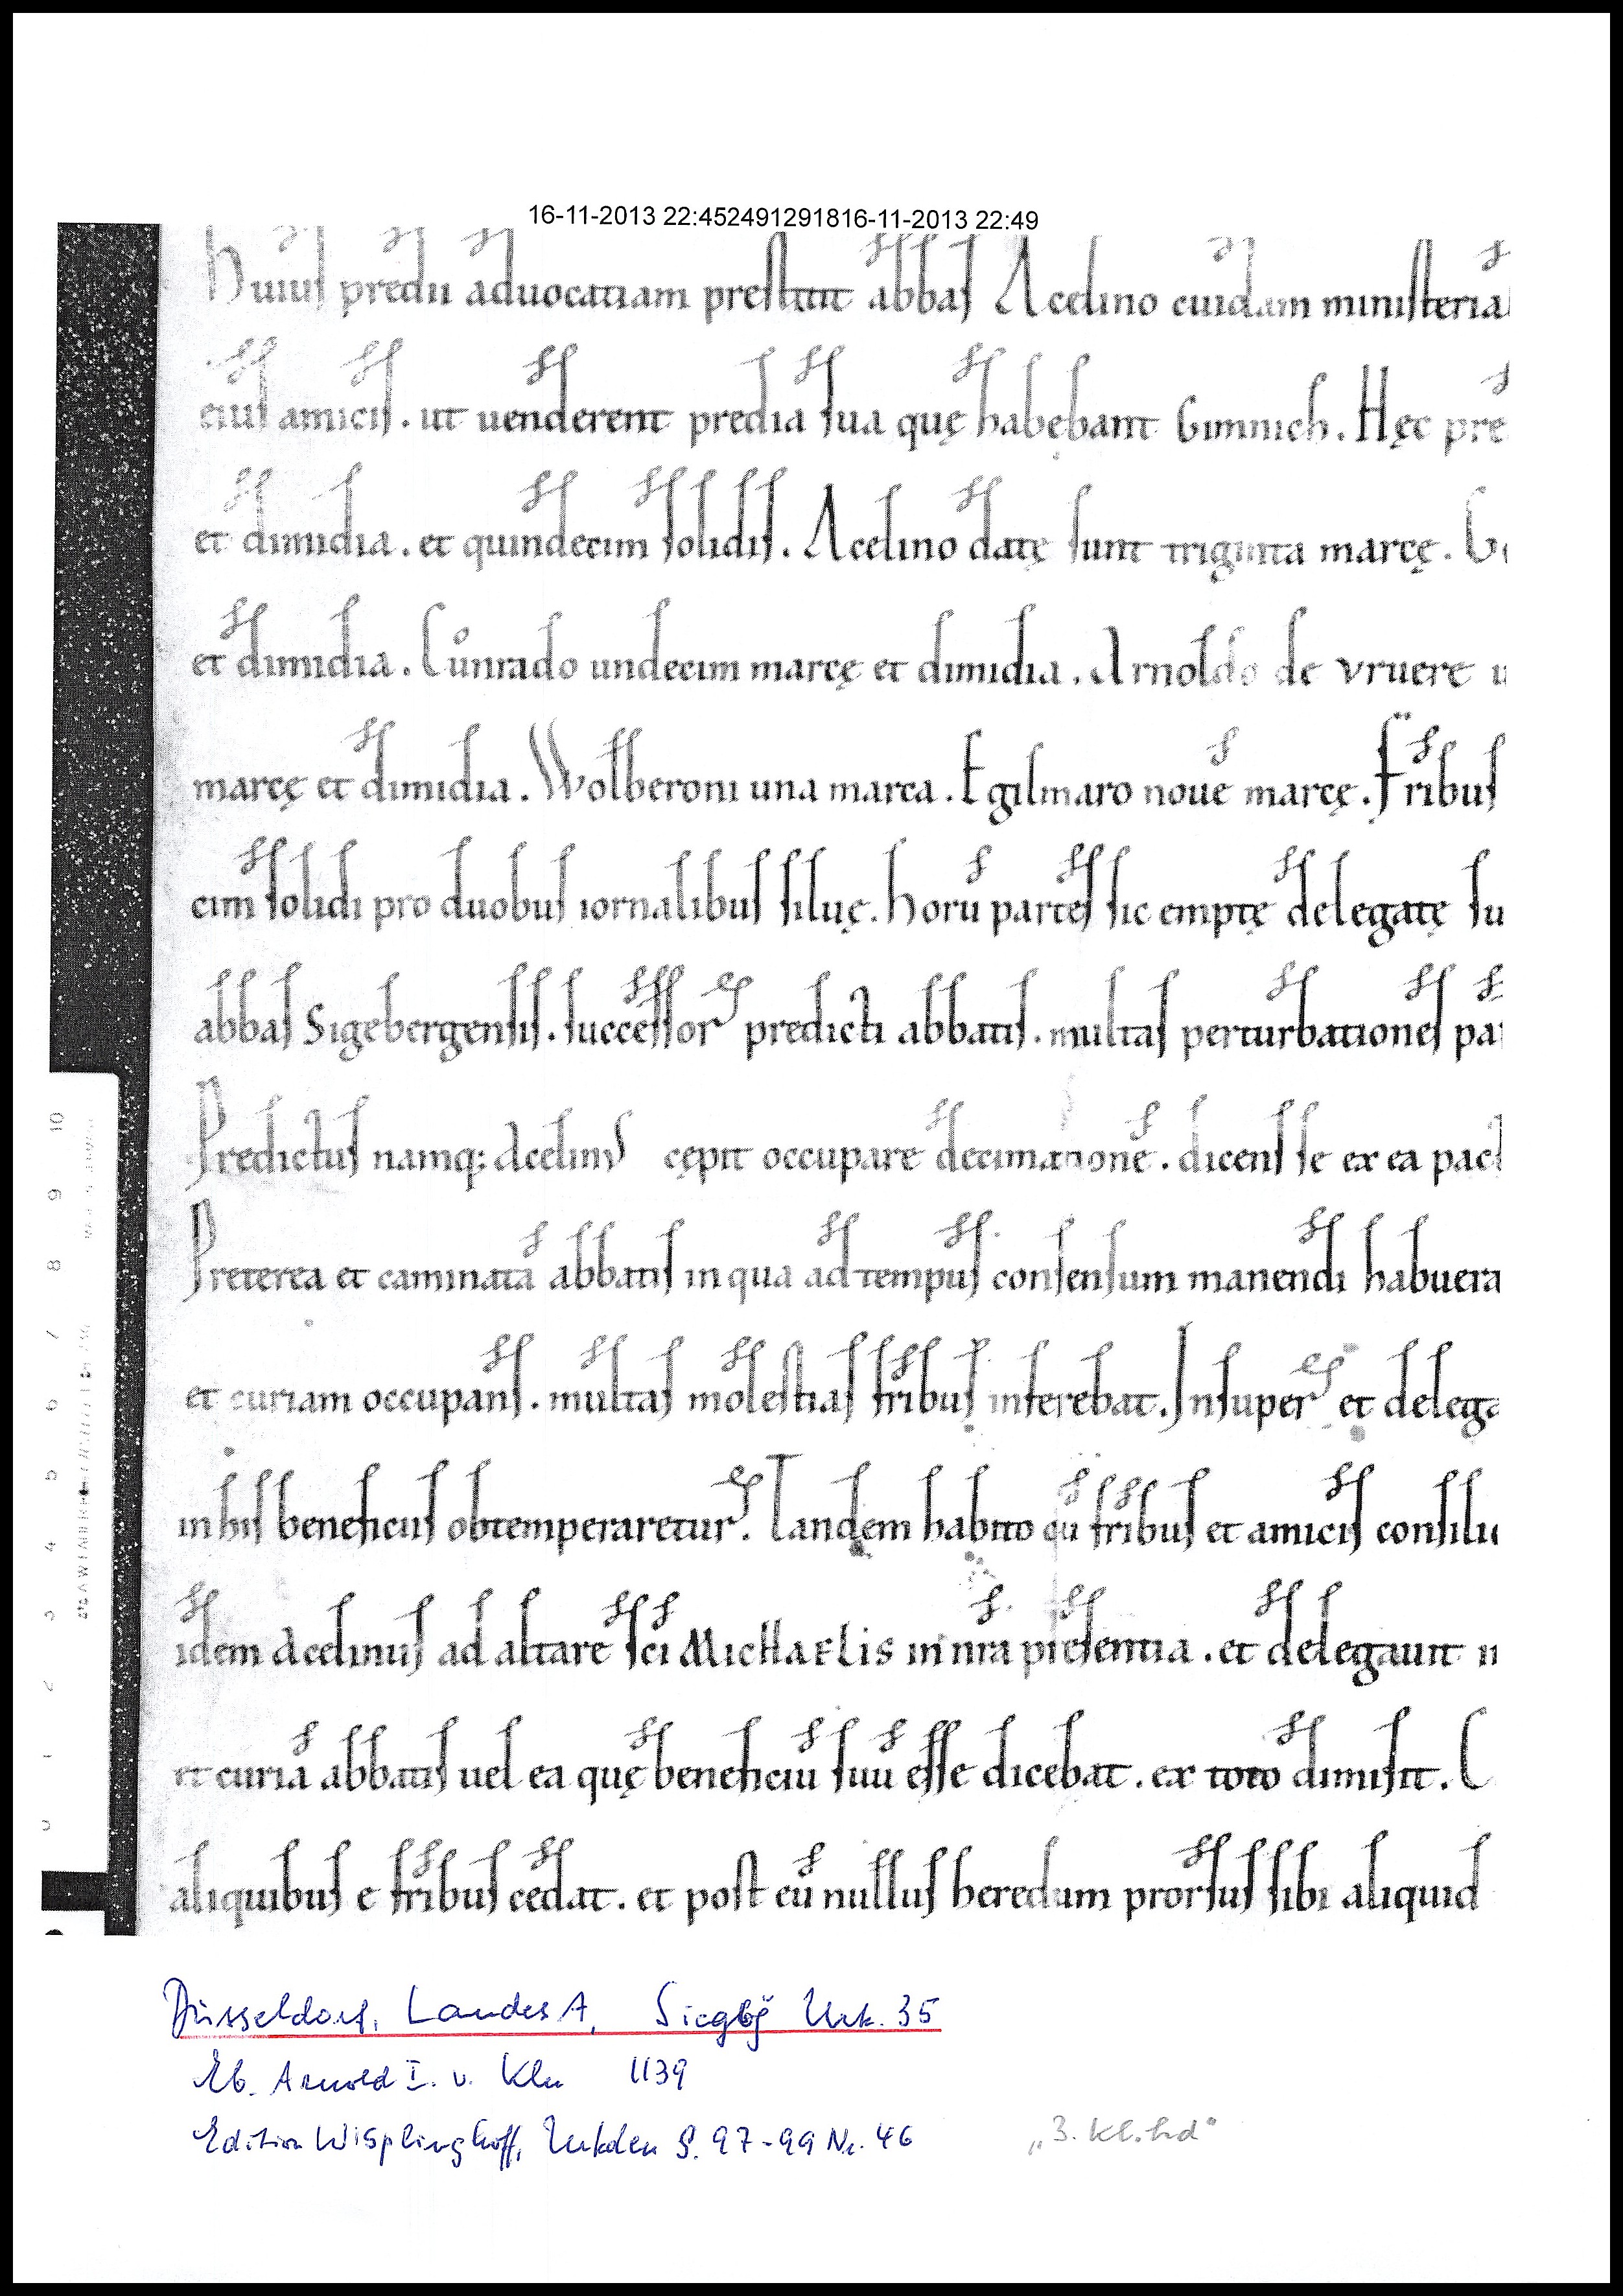 16-11-2013 22:452491291816-11-2013 22:49
Huiuſ predii aduocatiam preſtitit abbaſ Acelino cuidam miniſteria
eiuſ amiciſ. ut uenderent predia ſua quę habebant Gimnich. Hęc pre
et dimidia. et quindecim ſolidiſ. Acelino datę ſunt triginta marcę. G
et dimidia. Cůnrado undecim marcę et dimidia. Arnoldo de vruere u
marcę et dimidia. Wolberoni una marca. Egilmaro nouē marcę. Fribuſ
cim ſolidi pro duobuſ iornalibuſ ſiluę. Horū parteſ ſic emptę delegatę ſu
abbaſ Sigebergenſiſ. ſucceſſor predicti abbatiſ. multaſ perturbationeſ pa
Predictuſ namq; Acelinuſ cępit occupare decimationē. dicenſ ſe ex ea pac
Preterea et caminatā abbatiſ in qua ad tempuſ conſenſum manendi habuera
et curiam occupanſ. multaſ moleſtiaſ fribuſ inferebat. Inſuper et deleg
in hiſ beneficiiſ obtemperaretur. Tandem habito cū fribuſ et amiciſ conſiliu
idem Acelinuſ ad altare ſci MicHaelis in nra preſentia. et delegauit n
et curiā abbatiſ uel ea quę beneficiū ſuū eſſe dicebat. ex toto dimiſit. C
aliquibuſ e fribuſ cedat. et poſt eū nulluſ heredum prorſuſ ſibi aliquid
10
9
8
7
6
5
4
3
2
1
0
Düsseldorf, LandesA, Siegbg Urk. 35
Eb. Arnold I. v. Kln 1139
Edition Wisplinghoff, Urkden S. 97-99 Nr. 46
„3. Kl. hd"